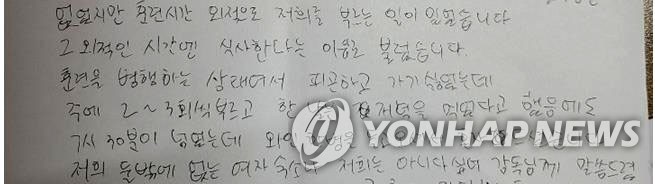 없었지만 훈련시간 외적으로 저희를 부르는 일이 있었습니다
그 외적인 시간엔 식사한다는 이유로 불렀습니다.
훈련을 병행하는 상태여서 피곤하고 가기싫었는데
주에 2~3회씩부르고 한 저녁을 먹었다고 했음에도
7시 30분이 넘었는데 와인
저희 둘밖에 없는 여자 숙소 저희는 아니다싶어 감독님께 말씀드렸
YONHAP NEWS